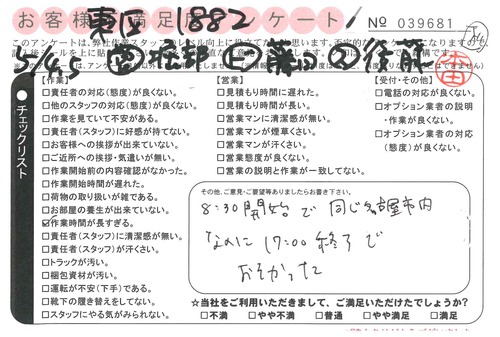 お客様満足度アンケート！
東区 1882
No 039681
チェックリスト
【作業】
□責任者の対応(態度)が良くない。
□他のスタッフの対応(態度)が良くない。
□作業を見ていて不安がある。
□責任者(スタッフ)に好感が持てない。
□お客様への挨拶が出来ていない。
□ご近所への挨拶・気遣いが無い。
□作業開始前の内容確認がなかった。
□作業開始時間が遅れた。
□荷物の取り扱いが雑である。
□お部屋の養生が出来ていない。
☑作業時間が長すぎる。
□責任者(スタッフ)に清潔感が無い。
□責任者(スタッフ)が汗くさい。
□トラックが汚い。
□梱包資材が汚い。
□運転が不安(下手)である。
□靴下の履き替えをしてない。
□スタッフにやる気がみられない。
【営業】
□見積もり時間に遅れた。
□見積もり時間が長い。
□営業マンに清潔感が無い。
□営業マンが煙草くさい。
□営業マンが汗くさい。
□営業態度が良くない。
□営業の説明と作業が一致してない。
【受付・その他】
□電話の対応が良くない。
□オプション業者の説明
・作業が良くない。
□オプション業者の対応
(態度)が良くない。
その他、ご意見・ご要望等ありましたらお書き下さい。
8:30開始で 同じ名古屋市内
なのに 17:00 終了で
おそかった
☆当社をご利用いただきまして、ご満足いただけたでしょうか？
□不満 □やや不満 □普通 □やや満足 □満足